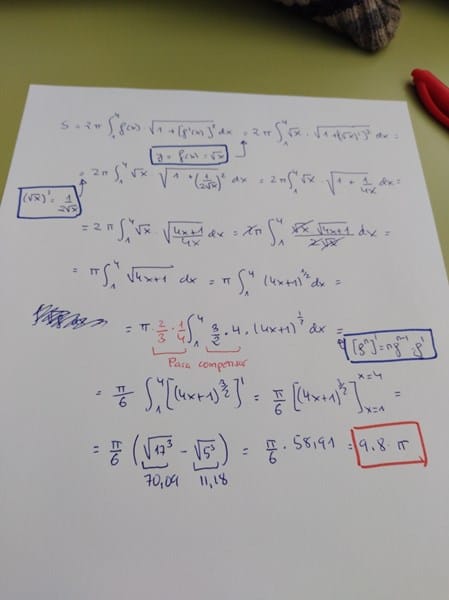 S = 2π ∫₁⁴ f(x) · √(1 + [f'(x)]²) dx = 2π ∫₁⁴ √x · √(1 + [(√x)']²) dx =
y = f(x) = √x
= 2π ∫₁⁴ √x · √(1 + (1/(2√x))²) dx = 2π ∫₁⁴ √x · √(1 + 1/(4x)) dx =
(√x)' = 1/(2√x)
= 2π ∫₁⁴ √x · √((4x+1)/(4x)) dx = 2π ∫₁⁴ (√x √(4x+1))/(2√x) dx =
= π ∫₁⁴ √(4x+1) dx = π ∫₁⁴ (4x+1)^(1/2) dx =
= π · 2/3 · 1/4 ∫₁⁴ 3/2 · 4 · (4x+1)^(1/2) dx =
Para compensar
[gⁿ]' = n gⁿ⁻¹ g'
= π/6 ∫₁⁴ [(4x+1)^(3/2)]' = π/6 [(4x+1)^(3/2)]ₓ₌₁ˣ⁼⁴ =
= π/6 (√17³ − √5³) = π/6 · 58,91 = 9,8 · π
70,09 11,18